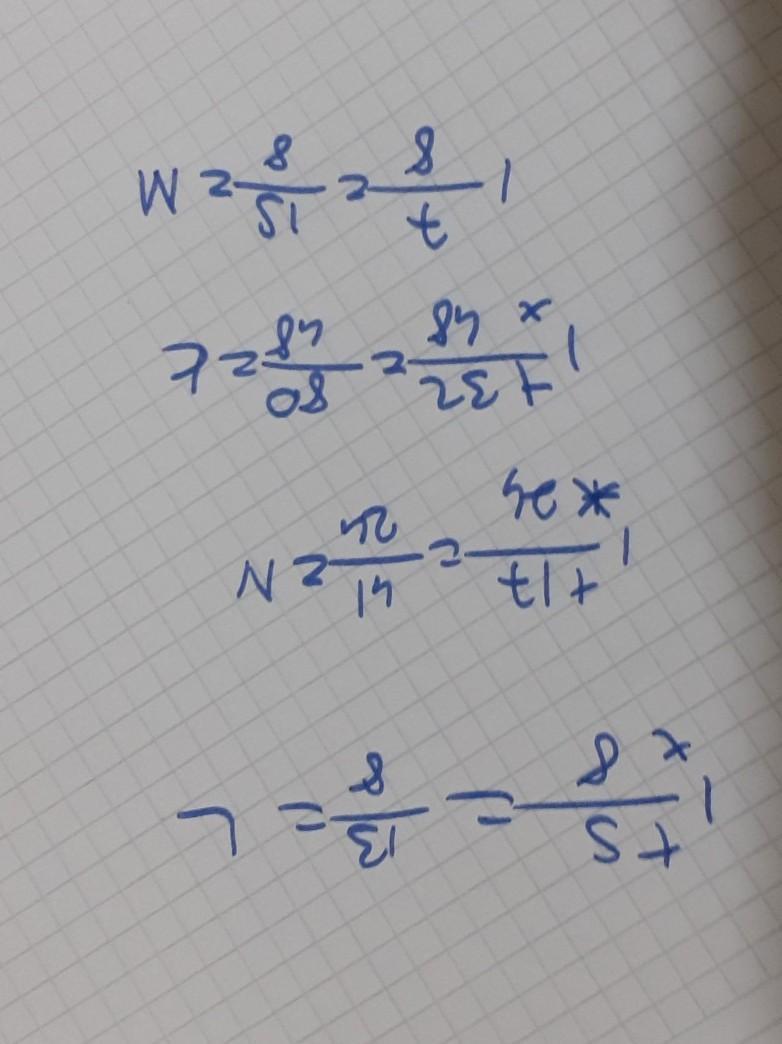 1 +5/x 8 = 13/8 = L
1 +17/* 24 = 41/24 = N
1 +32/x 48 = 80/48 =
1 7/8 = 15/8 = M